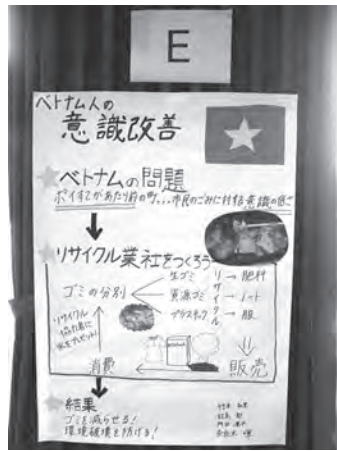 E
ベトナム人の
意識改善
ベトナムの問題
ポイすてがあたり前の町...市民のごみに対する意識の低さ
リサイクル業社をつくろう
ゴミの分別
生ゴミ
資源ゴミ
プラスチック
リサイクル
肥料
ノート
服
リサイクル
消費
販売
結果
ゴミを減らせる!
環境破壊を防げる!